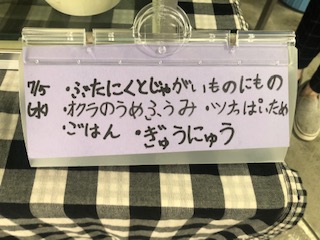 7/5 ・ぶたにくとじゃがいものにもの
(水) ・オクラのうめふうみ ・ツナはぱいため
・ごはん ・ぎゅうにゅう